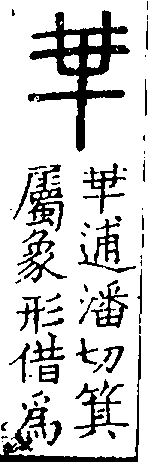 𠦒
𠦒逋潘切箕
屬象形借爲